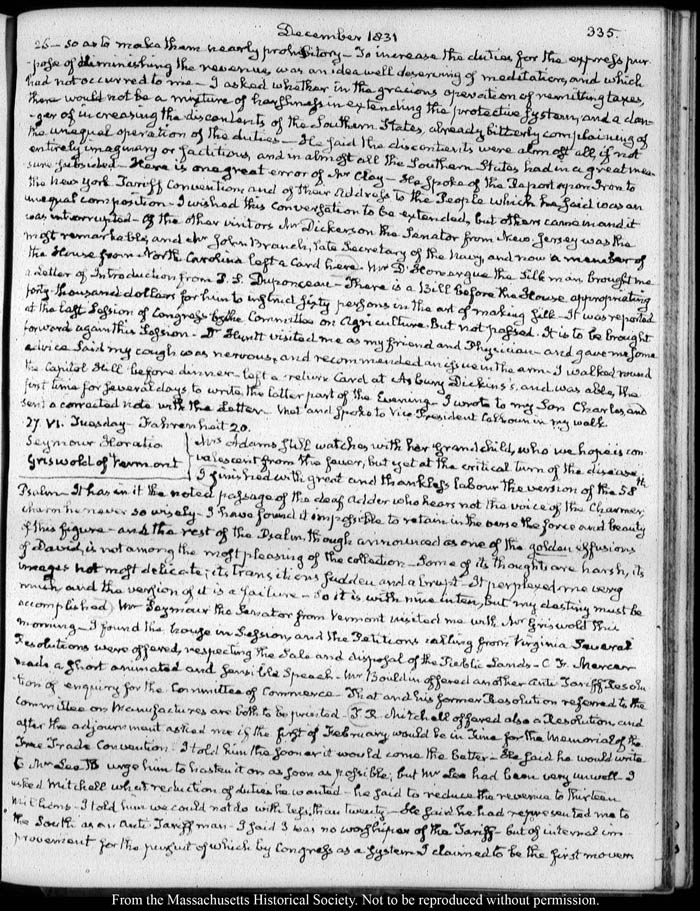 December 1831
335.
26— so as to make them nearly prohibitory— To increase the duties for the express pur
-pose of diminishing the revenue, was an idea well deserving of meditation, and which
had not occurred to me— I asked whether in the gracious operation of remitting taxes,
there would not be a mixture of harshness in extending the protective system, and a dan-
-ger of increasing the discontents of the Southern States, already bitterly complaining of
the unequal operation of the duties— He said the discontents were almost all, if not
entirely imaginary or factitious, and in almost all the Southern States had in a great mea-
sure subsided— Here is one great error of Mr Clay— He spoke of the Report upon Iron to
the New York Tariff Convention, and of their Address to the People which he said was an
unequal composition— I wished this conversation to be extended, but others came in and it
was interrupted— Of the other visitors Mr Dickerson the Senator from New Jersey was the
most remarkable, and Mr John Branch, late Secretary of the Navy, and now a member of
the House from North Carolina left a Card here. Mr D. Homergue the Silk man, brought me
a Letter of Introduction from P. S. Duponceau— There is a Bill before the House appropriating
forty thousand dollars for him to instruct sixty persons in the art of making Silk— It was reported
at the last Session of Congress by the Committee on Agriculture. But not passed. It is to be brought
forward again this Session— Dr Huntt visited me as my friend and Physician— and gave me some
advice. Said my cough was nervous, and recommended an issue in the arm— I walked round
the Capitol Hill before dinner— left a return Card at Asbury Dickins's, and was able, the
first time for several days to write the latter part of the Evening— I wrote to my Son Charles, and
sent a corrected note with the Letter— Met and spoke to Vice President Calhoun in my walk
27. VI. Tuesday— Fahrenheit 20.
Seymour Horatio
Griswold of Vermont
Mrs Adams still watches with her Grandchild, who we hope is con
valescent from the fever, but yet at the critical turn of the disease.
I finished with great and thankless labour the version of the 58th
Psalm— It has in it the noted passage of the deaf adder who hears not the voice of the Charmer,
charm he never so wisely— I have found it impossible to retain in the verse the force and beauty
of this figure— and the rest of the Psalm, though announced as one of the golden effusions
of David, is not among the most pleasing of the collection— Some of its thoughts are harsh, its
images not most delicate; its transitions sudden and abrupt— It perplexed me very
much, and the version of it is a failure— So it is with nine in ten, but my destiny must be
accomplished. Mr Seymour the Senator from Vermont visited me with Mr Griswold this
morning— I found the house in Session, and the Petitions calling from Virginia Several
Resolutions were offered, respecting the Sale and disposal of the Public Lands— C. F. Mercer
made a short animated and sensible Speech— Mr Bouldin offered another anti Tariff Resolu
-tion of enquiry for the Committee of Commerce— That and his former Resolution referred to the
Committee on Manufactures are both to be printed— T. R. Mitchell offered also a Resolution, and
after the adjournment asked me if the first of February would be in time for the Memorial of the
Free Trade Convention. I told him the sooner it would come the better— He said he would write
to Mr Lee to urge him to hasten it on as soon as possible; but Mr Lee had been very unwell— I
asked Mitchell what reduction of duties he wanted— he said to reduce the revenue to thirteen
Millions— I told him we could not do with less than twenty— He said he had represented me to
the South as an anti Tariff man— I said I was no worshiper of the Tariff— but of internal im
provement for the pursuit of which by Congress as a System I claimed to be the first mover
From the Massachusetts Historical Society. Not to be reproduced without permission.